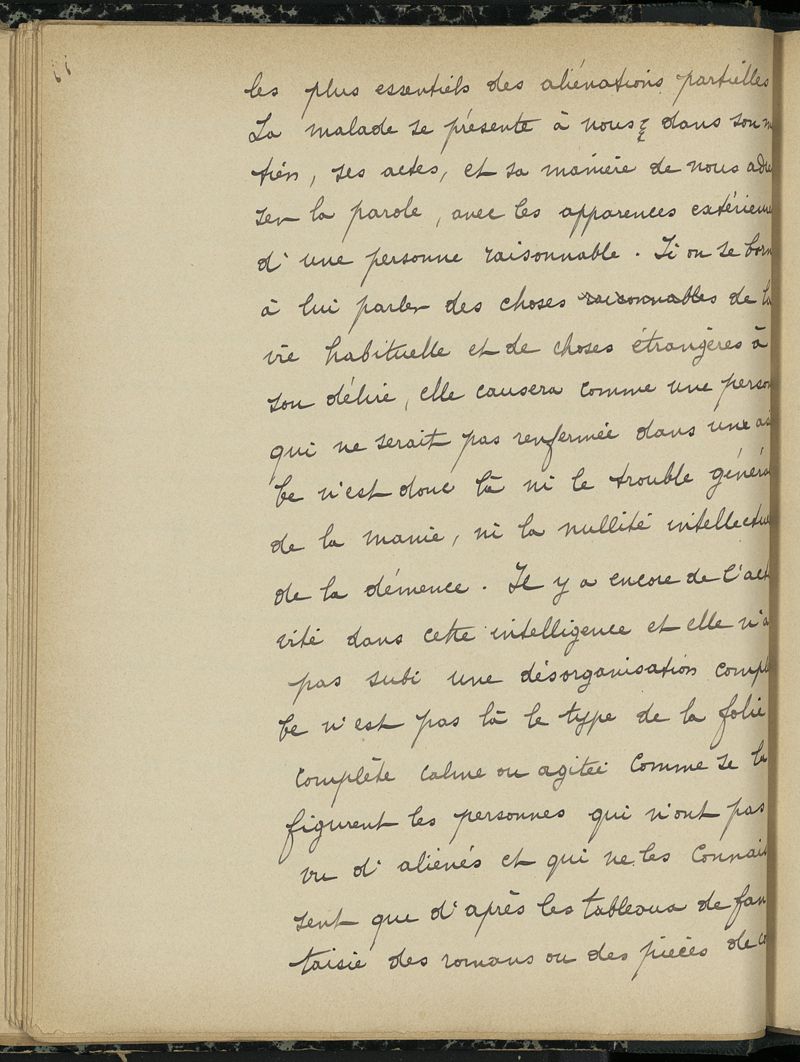 les plus essentiels des aliénations partielles
La malade se présente à nous dans son m
tien, ses actes, et sa manière de nous adre
ser la parole, avec les apparences extérieure
d'une personne raisonnable. Si on se born
à lui parler des choses raisonnables de la
vie habituelle et de choses étrangères à
son délire, elle causera comme une person
qui ne serait pas renfermée dans une as
Ce n'est donc là ni le trouble généra
de la manie, ni la nullité intellectue
de la démence. Il y a encore de l'act
vité dans cette intelligence et elle n'a
pas subi une désorganisation compl
Ce n'est pas là le type de la folie
complète calme ou agitée comme se la
figurent les personnes qui n'ont pas
vu d'aliénés et qui ne les connais
sent que d'après les tableaux de fan
taisie des romans ou des pièces de